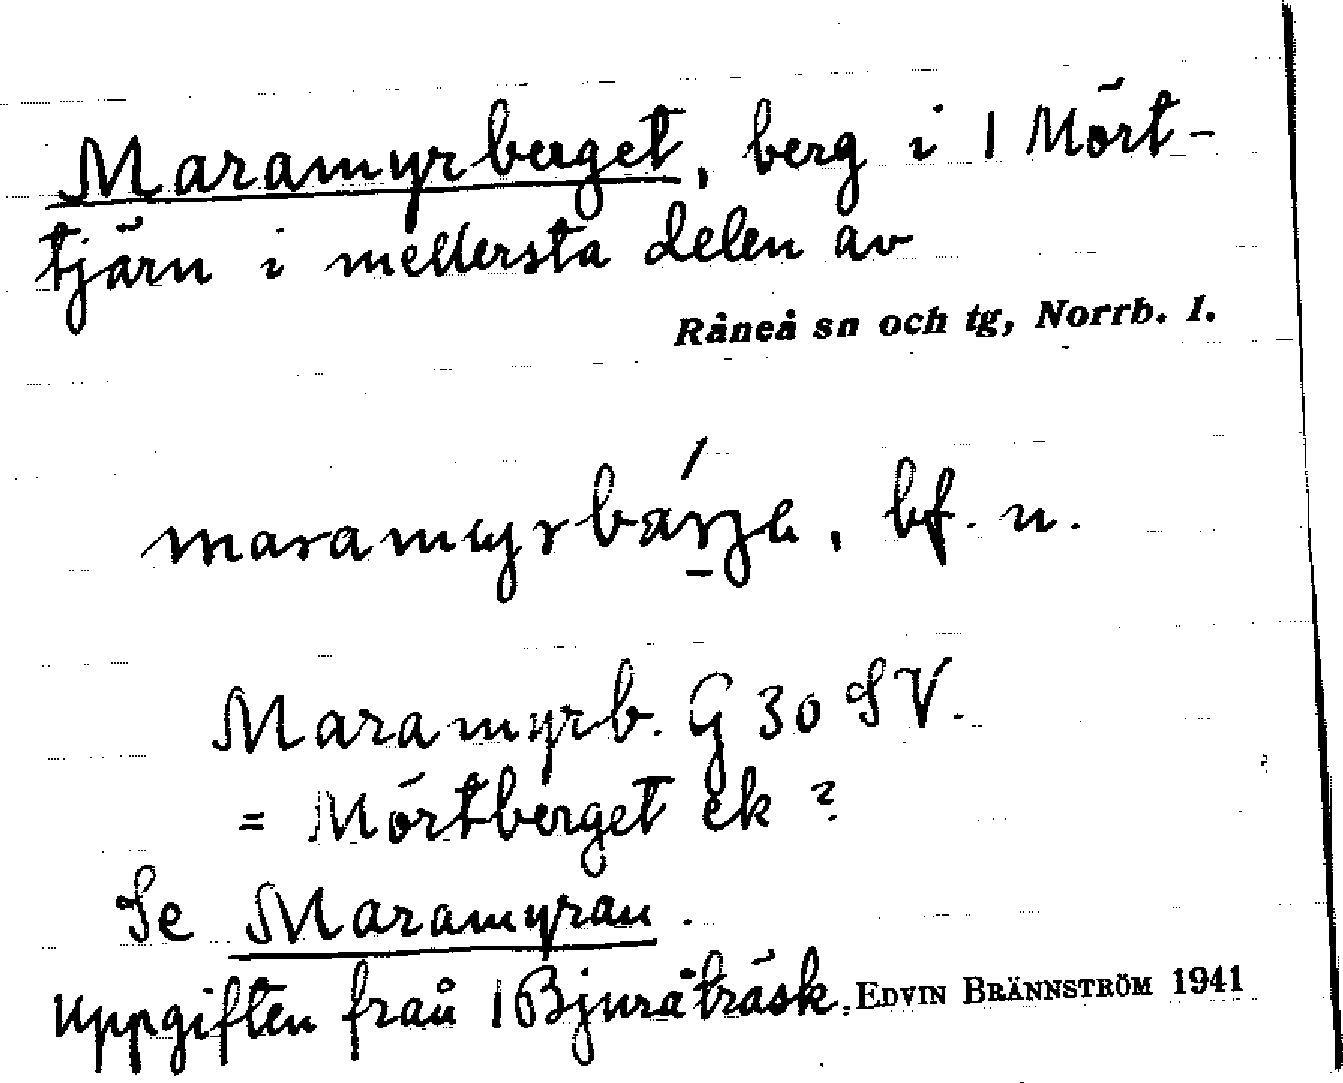 Maramyrberget, berg i 1 Mört-
tjärn i mellersta delen av
Råneå sn och tg, Norrb. l.
bf. n.
Maramyrb. G 30 SV.
= Mörtberget ek ?
Se Maramyran.
Uppgiften från 1 Bjuråträsk. EDVIN BRÄNNSTRÖM 1941